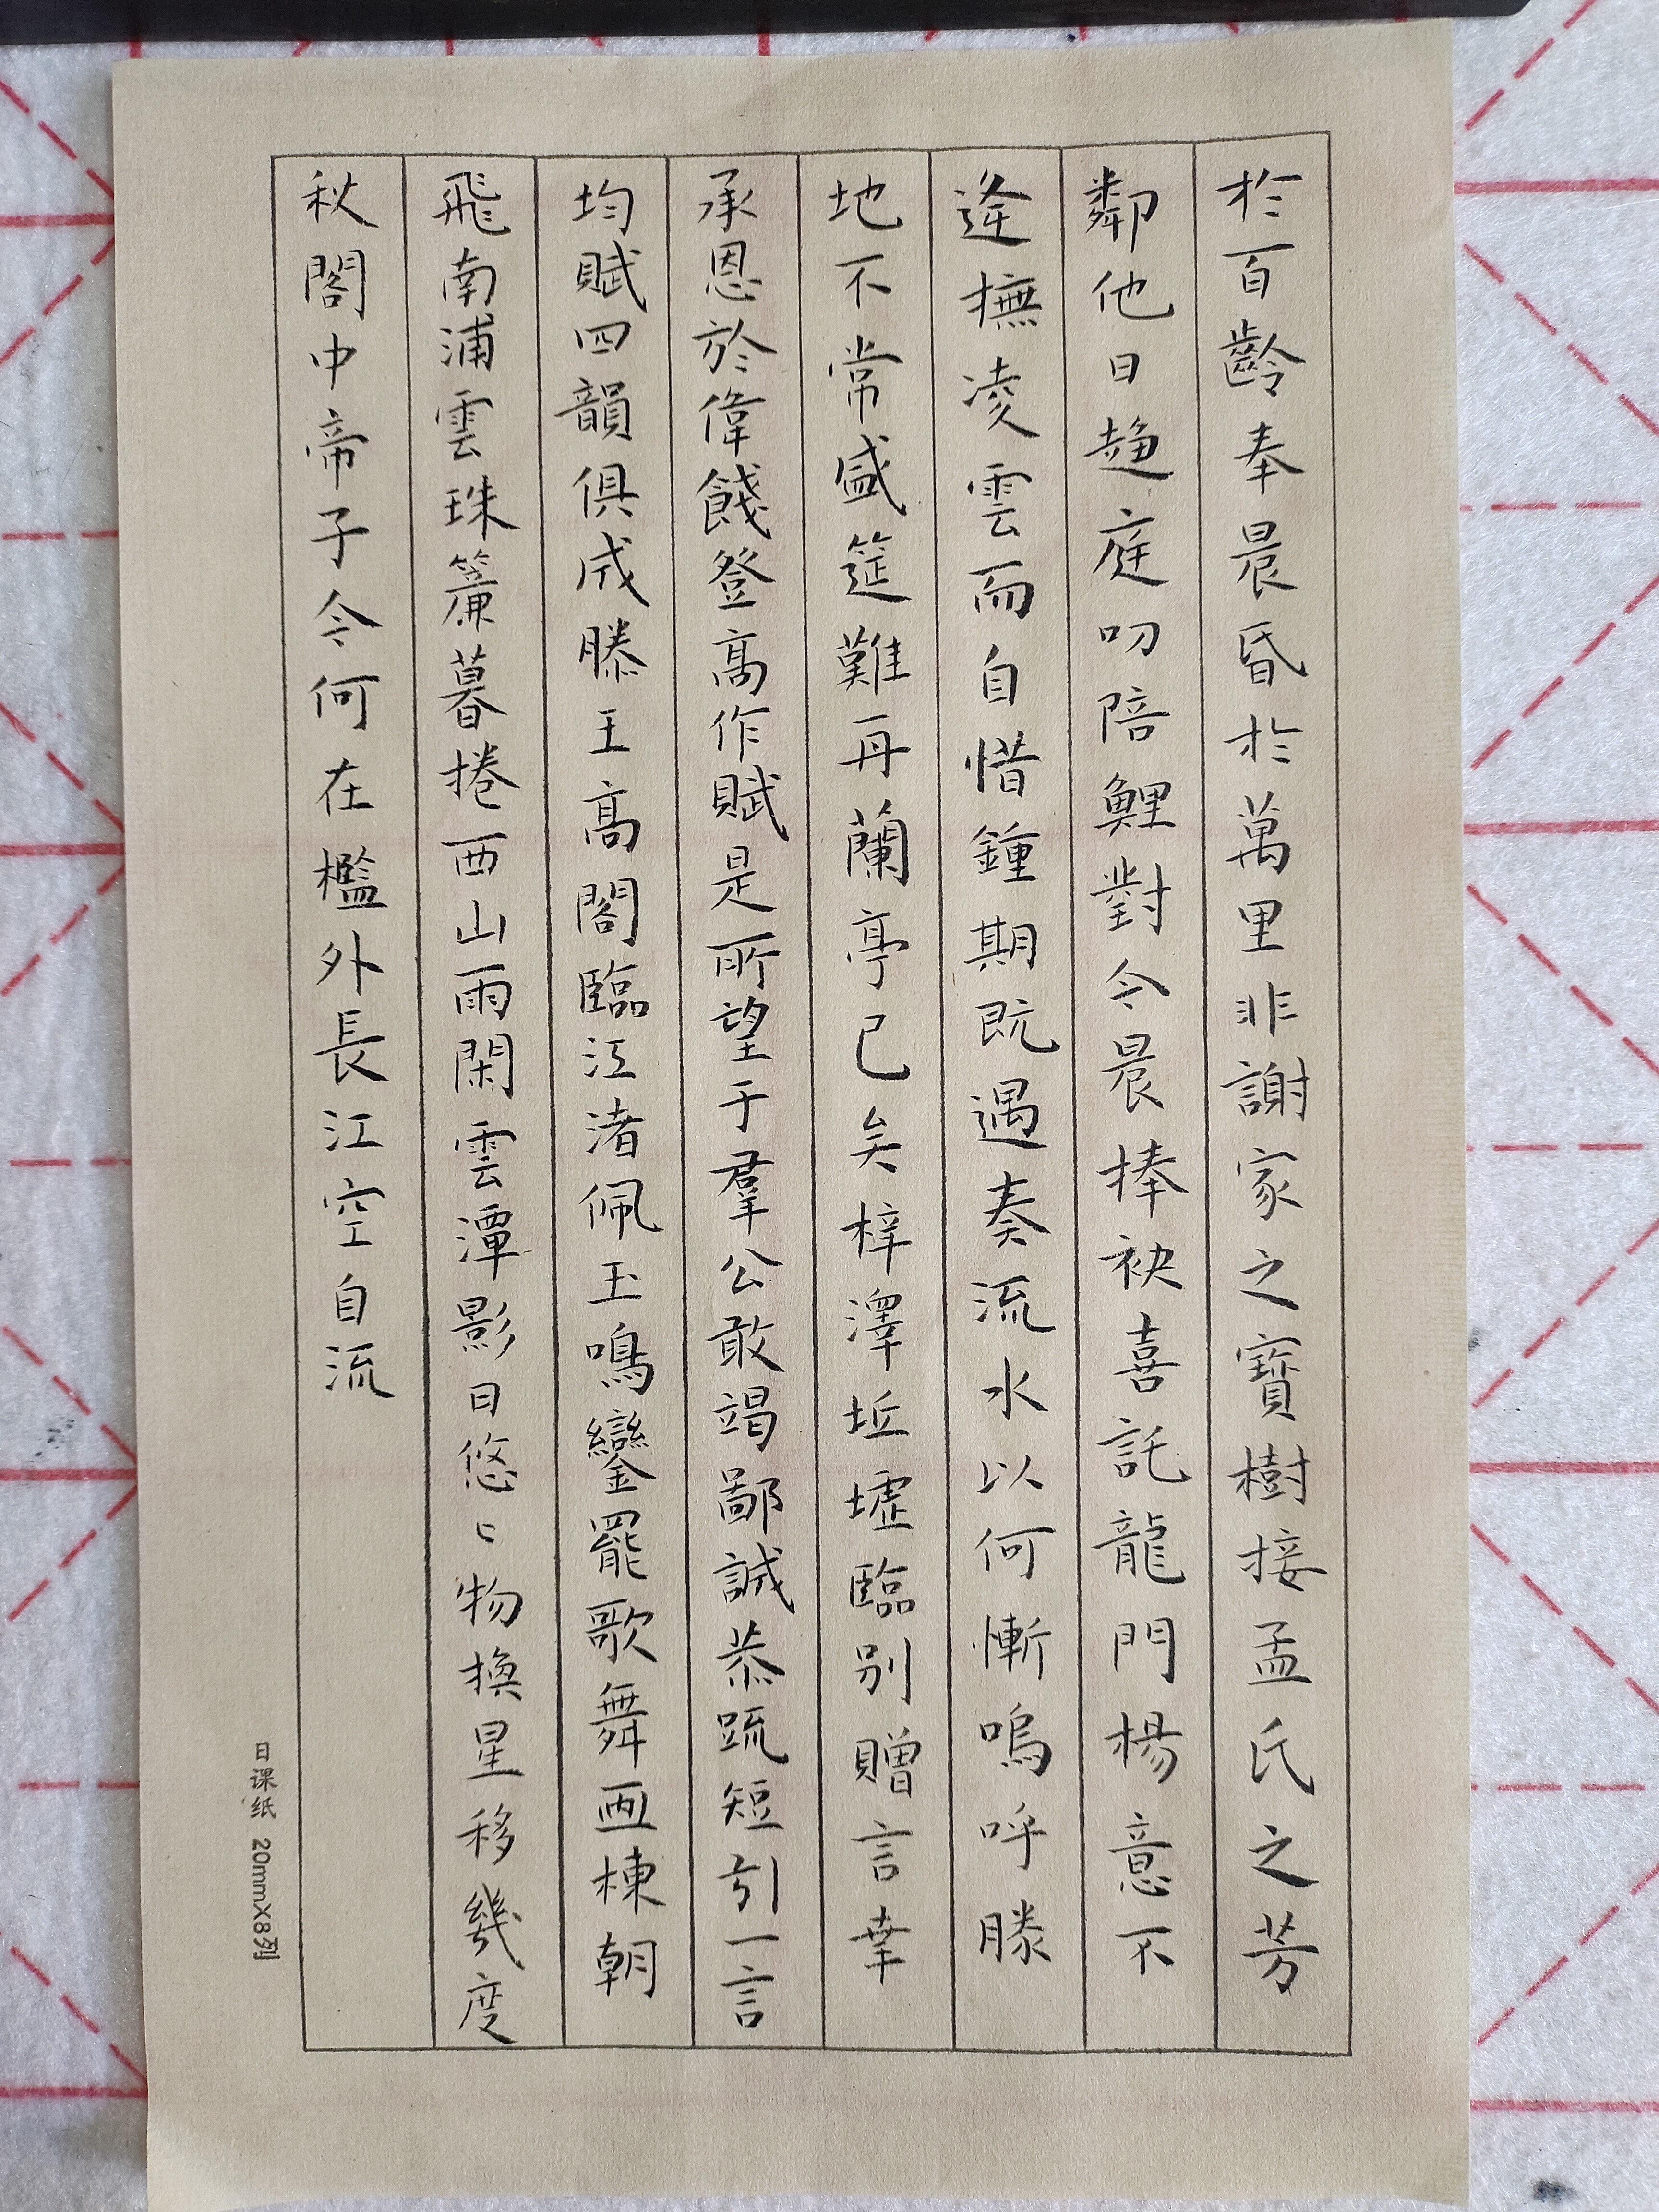 於百齡奉晨昏於萬里非謝家之寶樹接孟氏之芳
鄰他日趨庭叨陪鯉對今晨捧袂喜託龍門楊意不
逢撫凌雲而自惜鍾期既遇奏流水以何慚嗚呼勝
地不常盛筵難再蘭亭已矣梓澤坵墟臨別贈言幸
承恩於偉餞登高作賦是所望于羣公敢竭鄙誠恭疏短引一言
均賦四韻俱成滕王高閣臨江渚佩玉鳴鑾罷歌舞画棟朝
飛南浦雲珠簾暮捲西山雨閑雲潭影日悠〻物換星移幾度
秋閣中帝子今何在檻外長江空自流
日课纸 20mmX8列